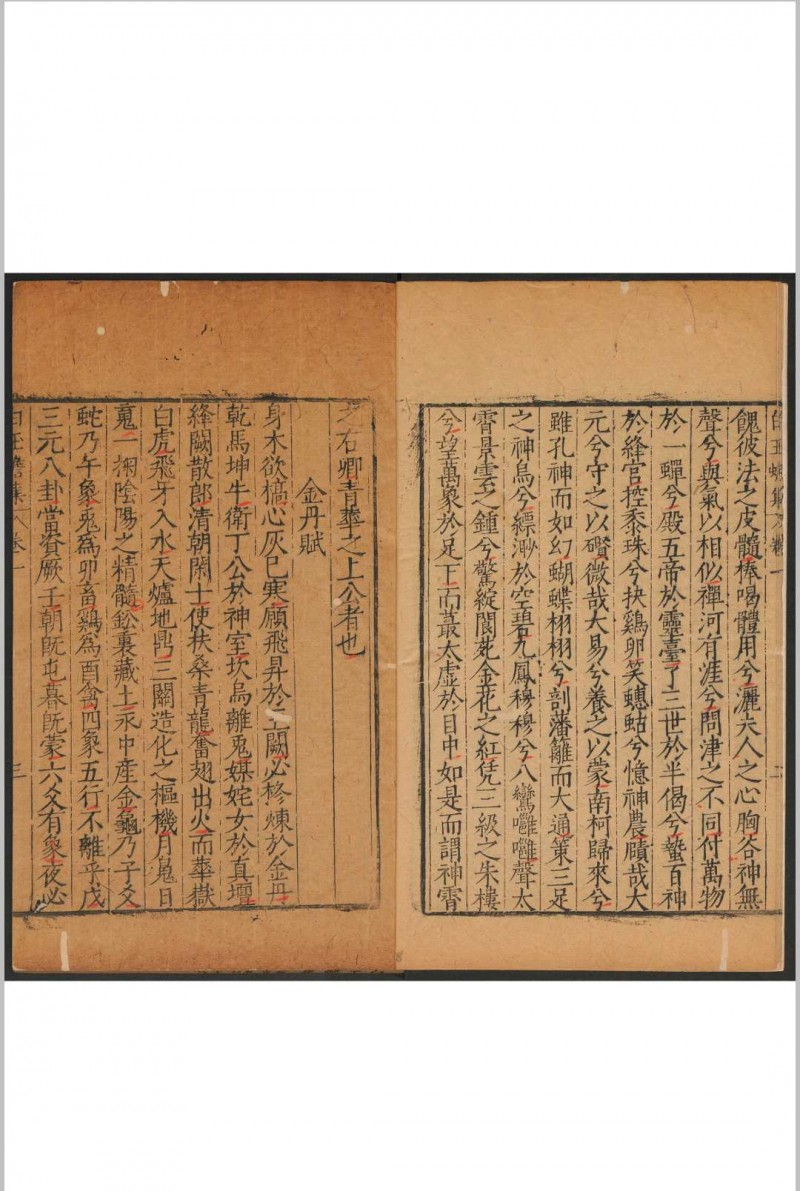 餽彼法之皮髓棒喝體用兮灑夫人之心胸谷神無
聲兮與氣以相似禪河有涯兮問津之不同付萬物
於一蟬兮殿五帝於靈臺了三世於半偈兮蟄百神
於絳官控黍珠兮抉鷄卵笑蟪蛄兮憶神農賾哉大
元兮守之以礥微哉大易兮養之以蒙南柯歸來兮
雖孔神而如幻蝴蝶栩栩兮剖藩籬而大通策三足
之神烏兮縹渺於空碧九鳳穆穆兮八鸞噰噰聲太
霄景雲之鍾兮驚綻閬苑金花之紅凭三級之朱樓
兮望萬象於足下而藂太虛於目中如是而謂神霄
之右卿青華之上公者也
金丹賦
身木欲槁心灰已寒願飛昇於玉闕必修煉於金丹
乾馬坤牛衛丁公於神室坎烏離兎媒姹女於真壇
絳闕散郎清朝閑士使扶桑青龍奮翅出火而華嶽
白虎飛牙入水天爐地鼎三關造化之樞機月䰟日
䰟一掬陰陽之精髓鈆裏藏土汞中産金龜乃子爻
蛇乃午象兎爲卯畜鷄爲酉禽四象五行不離乎戊
三元八卦當資厥壬朝旣屯暮旣蒙六爻有象夜必
白玉蟾集 卷一
三